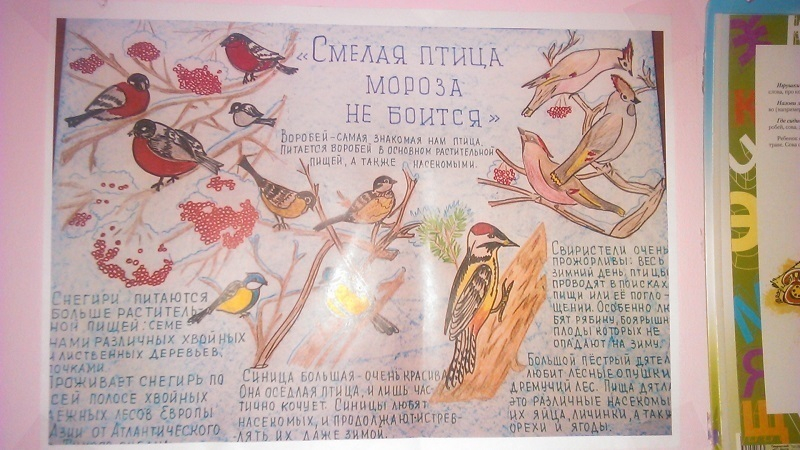 «Смелая птица
мороза
не боится»
Воробей-самая знакомая нам птица.
Питается воробей в основном растительной
пищей, а также насекомыми.
Снегири питаются
больше раститель-
ной пищей: семе-
нами различных хвойных
и лиственных деревьев,
почками.
Проживает снегирь по
всей полосе хвойных
Европы
Азии от Атлантического
Синица большая-очень красива
Она оседлая птица, и лишь час-
тично кочует. Синицы любят
насекомых, и продолжают истреб-
лять их даже зимой.
Свиристели очень
прожорливы: весь
зимний день птицы
проводят в поисках
пищи или её погло-
щении. Особенно лю-
бят рябину, боярышн
плоды которых не
опадают на зиму.
Большой пёстрый дятел
любит лесные опушки
дремучий лес. Пища дятла
это различные насекомы
их яйца, личинки, а так
орехи и ягоды.